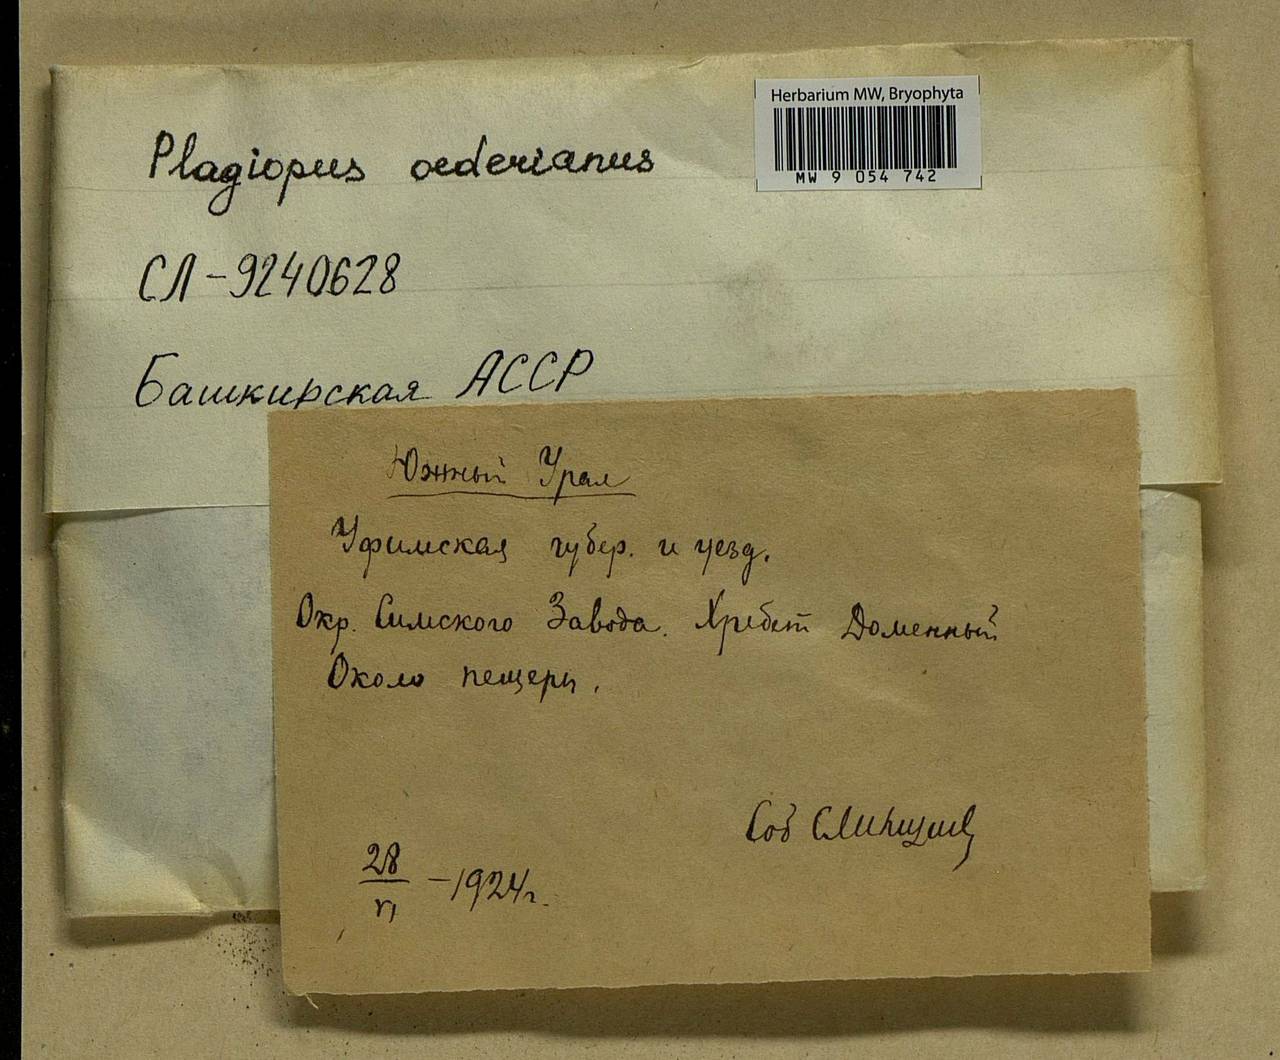 Herbarium MW, Bryophyta
MW 9 054 742
Plagiopus oederianus
СЛ-9240628
Башкирская АССР
Южный Урал
Уфимская губер. и уезд.
Окр. Симского Завода. Хребет Доменный
Около пещеры.
Соб
28/VI -1924г.